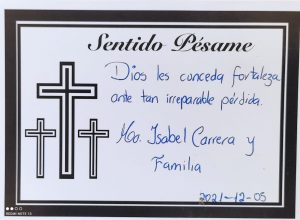 Sentido Pésame
Dios les conceda fortaleza
ante tan irreparable pérdida.
Ma. Isabel Carrera y
Familia
2021-12-05
REDMI NOTE 10